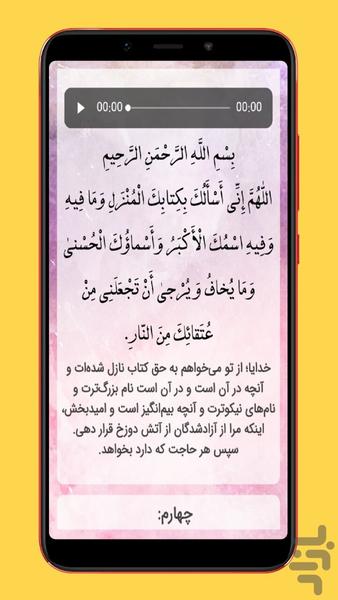 00:00 00:00
بِسْمِ اللَّهِ الرَّحْمَنِ الرَّحِیمِ
اللَّهُمَّ إِنِّی أَسْأَلُکَ بِکِتَابِکَ الْمُنْزَلِ وَمَا فِیهِ
وَفِیهِ اسْمُکَ الْأَکْبَرُ وَأَسْماؤُکَ الْحُسْنىٰ
وَمَا یُخافُ وَیُرْجىٰ أَنْ تَجْعَلَنِی مِنْ
عُتَقائِکَ مِنَ النَّارِ.
خدایا؛ از تو می‌خواهم به حق کتاب نازل شده‌ات و
آنچه در آن است و در آن است نام بزرگ‌ترت و
نام‌های نیکوترت و آنچه بیم‌انگیز است و امیدبخش،
اینکه مرا از آزادشدگان از آتش دوزخ قرار دهی.
سپس هر حاجت که دارد بخواهد.
چهارم:
بازار